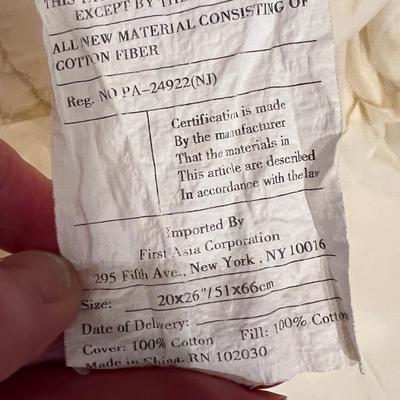 EXCEPT BY THE
ALL NEW MATERIAL CONSISTING OF
COTTON FIBER
Reg. NO PA-24922(NJ)
Certificatin is made
By the manufacturer
That the materials in
This article are described
In accordance with the law
Imported By
First Asia Corporation
295 Fifth Ave., New York, NY 10016
Size: 20x26"/51x66cm
Date of Delivery:
Cover: 100% Cotton Fill: 100% Cotton
Made in China. RN 102030